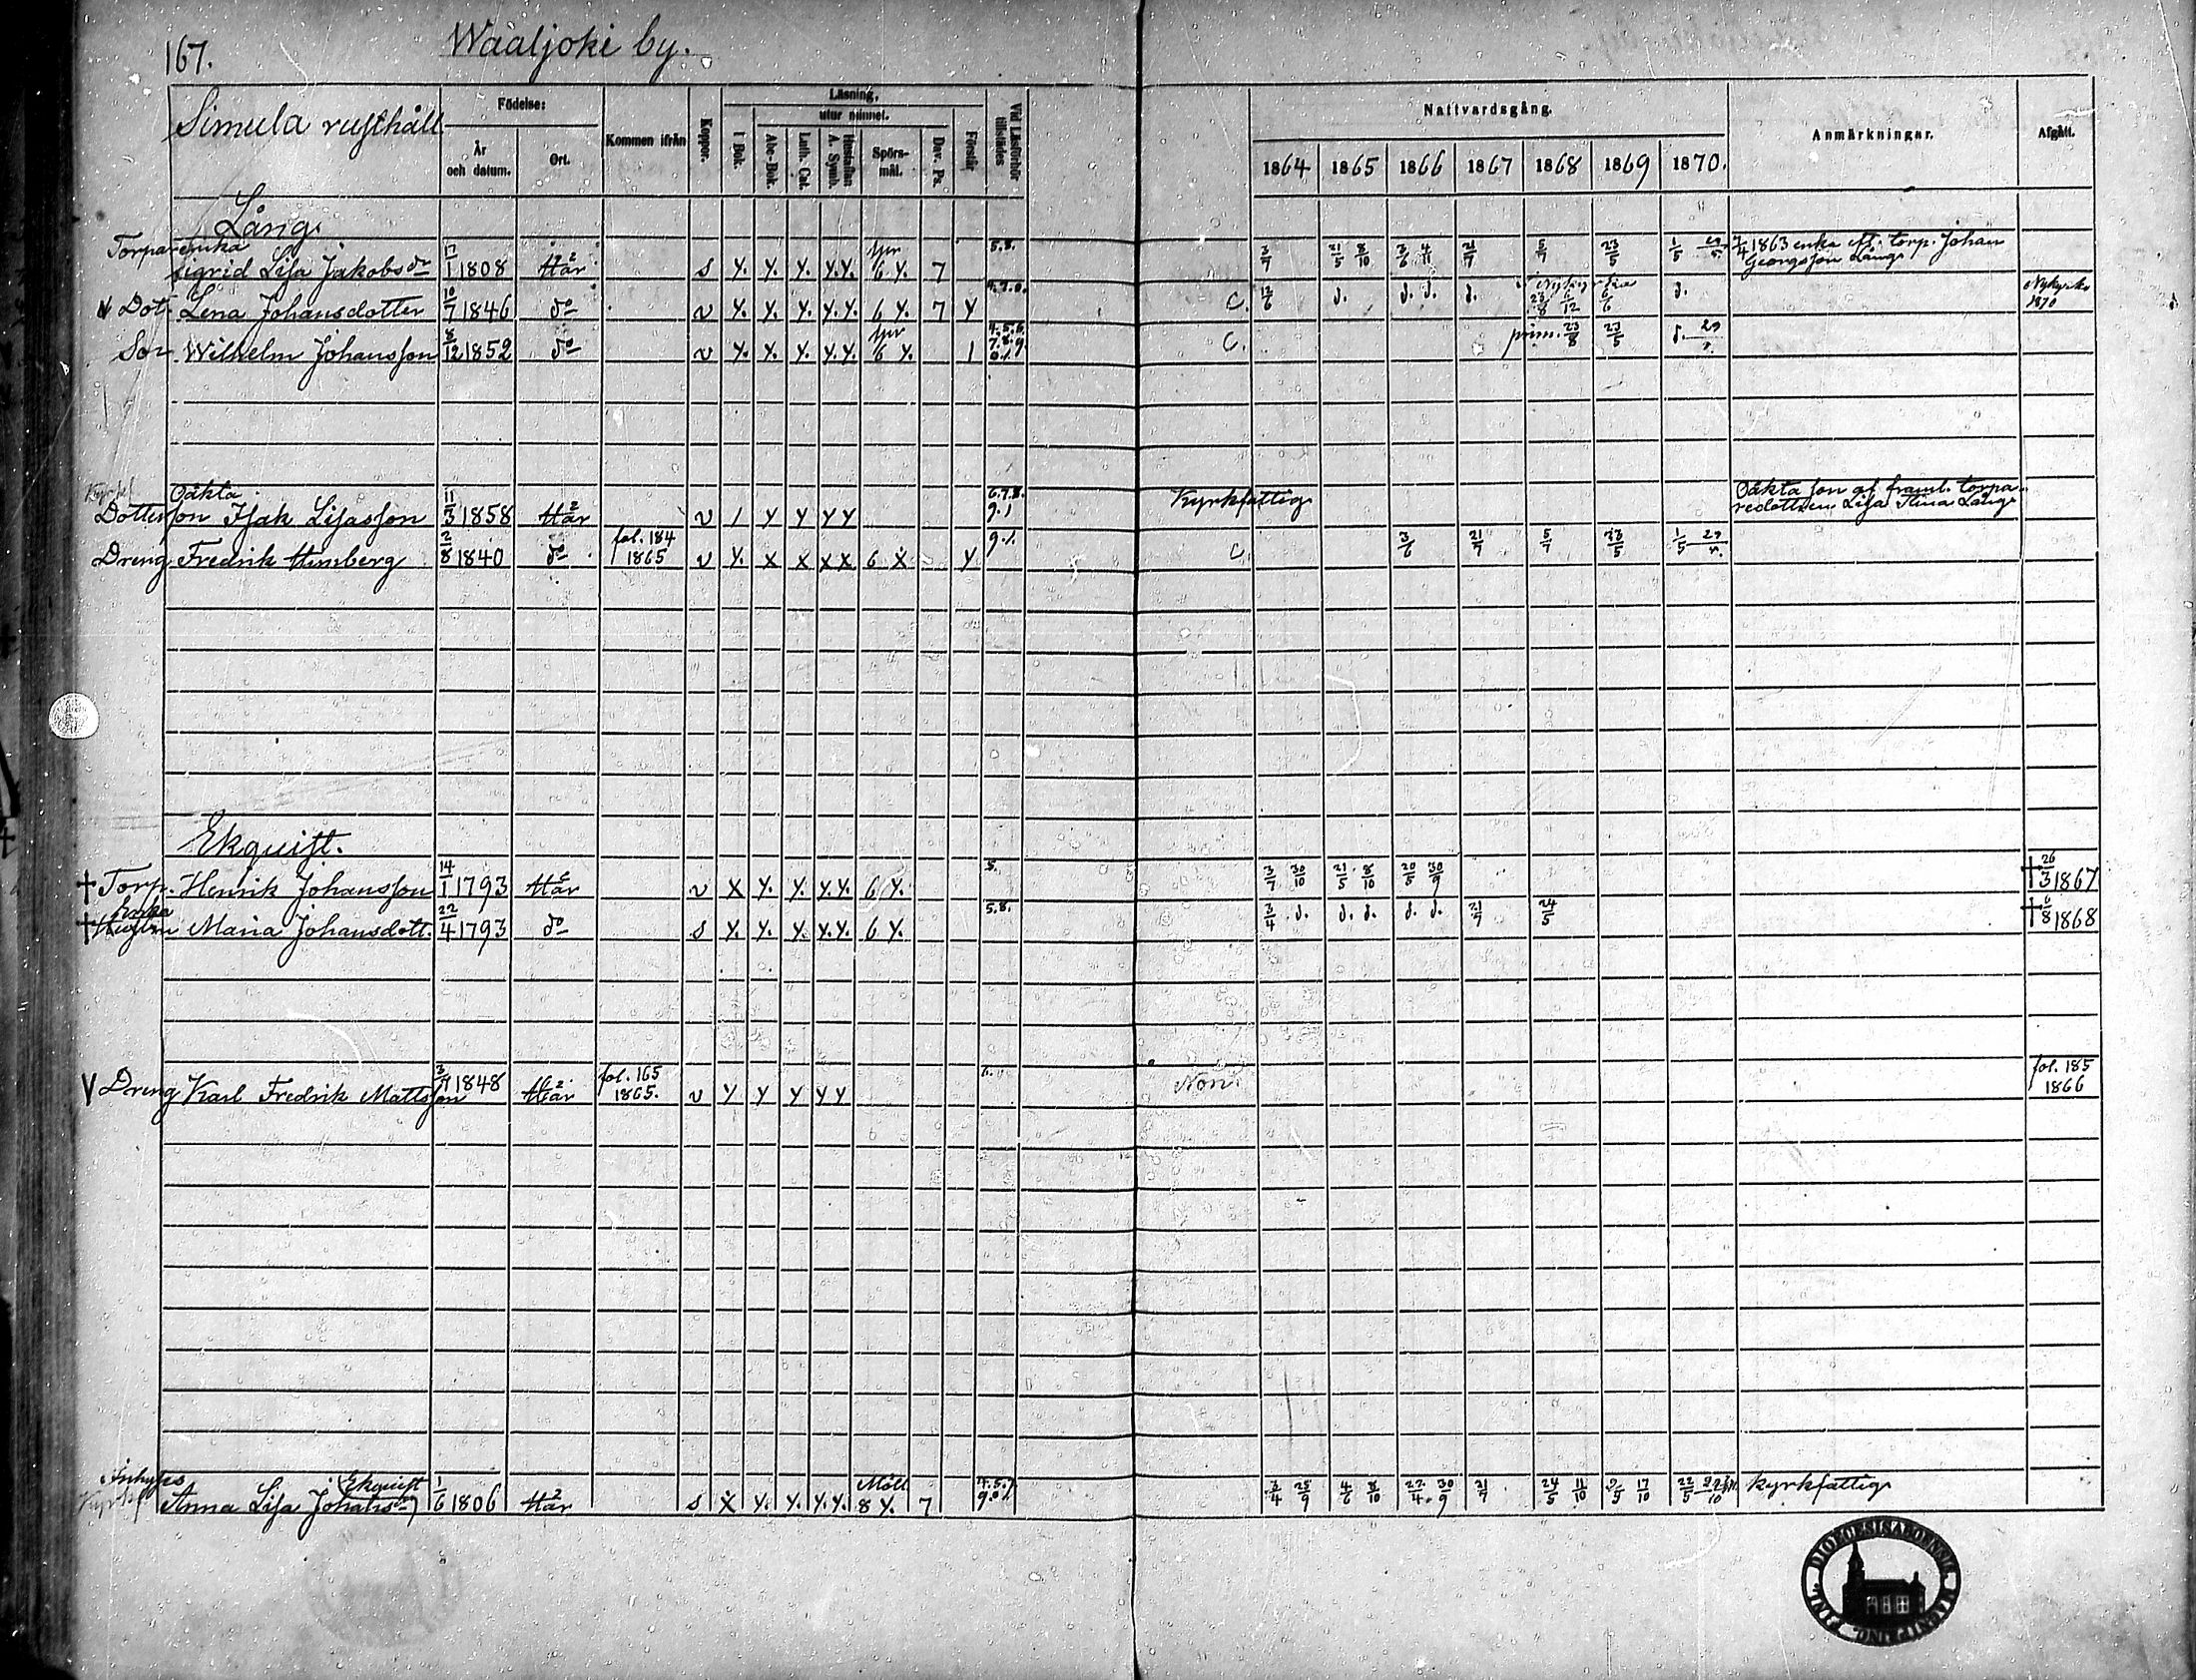 167. Waaljoki by.
Simula rusthåll
Födelse:
År och datum.
Ort.
Kommen ifrån
Koppor.
Läsning,
utur minnet.
I Bok.
Abc-Bok.
Luth. Cat.
Hustaflan A. Symb.
Spörs-mål.
Dav. Ps.
Förstår
Vid Läsförhör tillstädes
Nattvardsgång.
1864 1865 1866 1867 1868 1869 1870.
Anmärkningar.
Afgått.
Lång.
Torparenka
Sigrid Lisa Jakobsdr 17/1 1808 Här s y. y. y. y. y. 6 y. 7 5.8. 3/7 21/5 8/10 3/6 4/11 21/7 5/7 23/5 1/5 7/4 1863 enka eft. torp. Johan
Georgsson Lång
v Dot. Lena Johansdotter 10/7 1846 do v y. y. y. y. y. 6 y. 7 y C. 12/6 d. d. d. d. 23/8 6/12 6/6 d. Nykyrko
1870
Son Wilhelm Johansson 8/12 1852 do v y. y. y. y. y. 6 y. 1 4.5.6.
7.8.9.
0.1. C. prim. 23/8 23/5 d.
Oäkta
Dotterson Isak Lisasson 11/3 1858 Här v / y y y y 6.7.8.
9.1 Kyrkfattig Oäkta son af framl. torpa-
redottren Lisa Stina Lång
Dreng Fredrik 2/8 1840 do fol. 184
1865 v y. x x x x 6 x y 9.1. C. 3/6 21/7 5/7 23/5 1/5
Ekquist.
† Torp. Henrik Johansson 14/1 1793 Här v x y. y. y. y. 6 y. 5. 3/7 30/10 21/5 8/10 20/5 30/9 † 26/3 1867
Enka
† Hustrun Maria Johansdott. 22/4 1793 do s y. y. y. y. y. 6 y. 5.8. 3/4 d. d. d. d. d. 21/7 24/5 † 6/8 1868
V Dreng Karl Fredrik Mattsson 1848 Här fol. 165
1865. v y y y y y 6. Non. fol. 185
1866
Inhyses Ekquist
Anna Lisa Johansdr 1/6 1806 Här s x y. y. y. y. 8 y. 7 3/4 25/9 4/6 8/10 22/4 30/9 21/7 24/5 11/10 2/5 17/10 22/5 kyrkfattig
DIOECESIS ABOENSIS MAGNI PRINC. FINL.